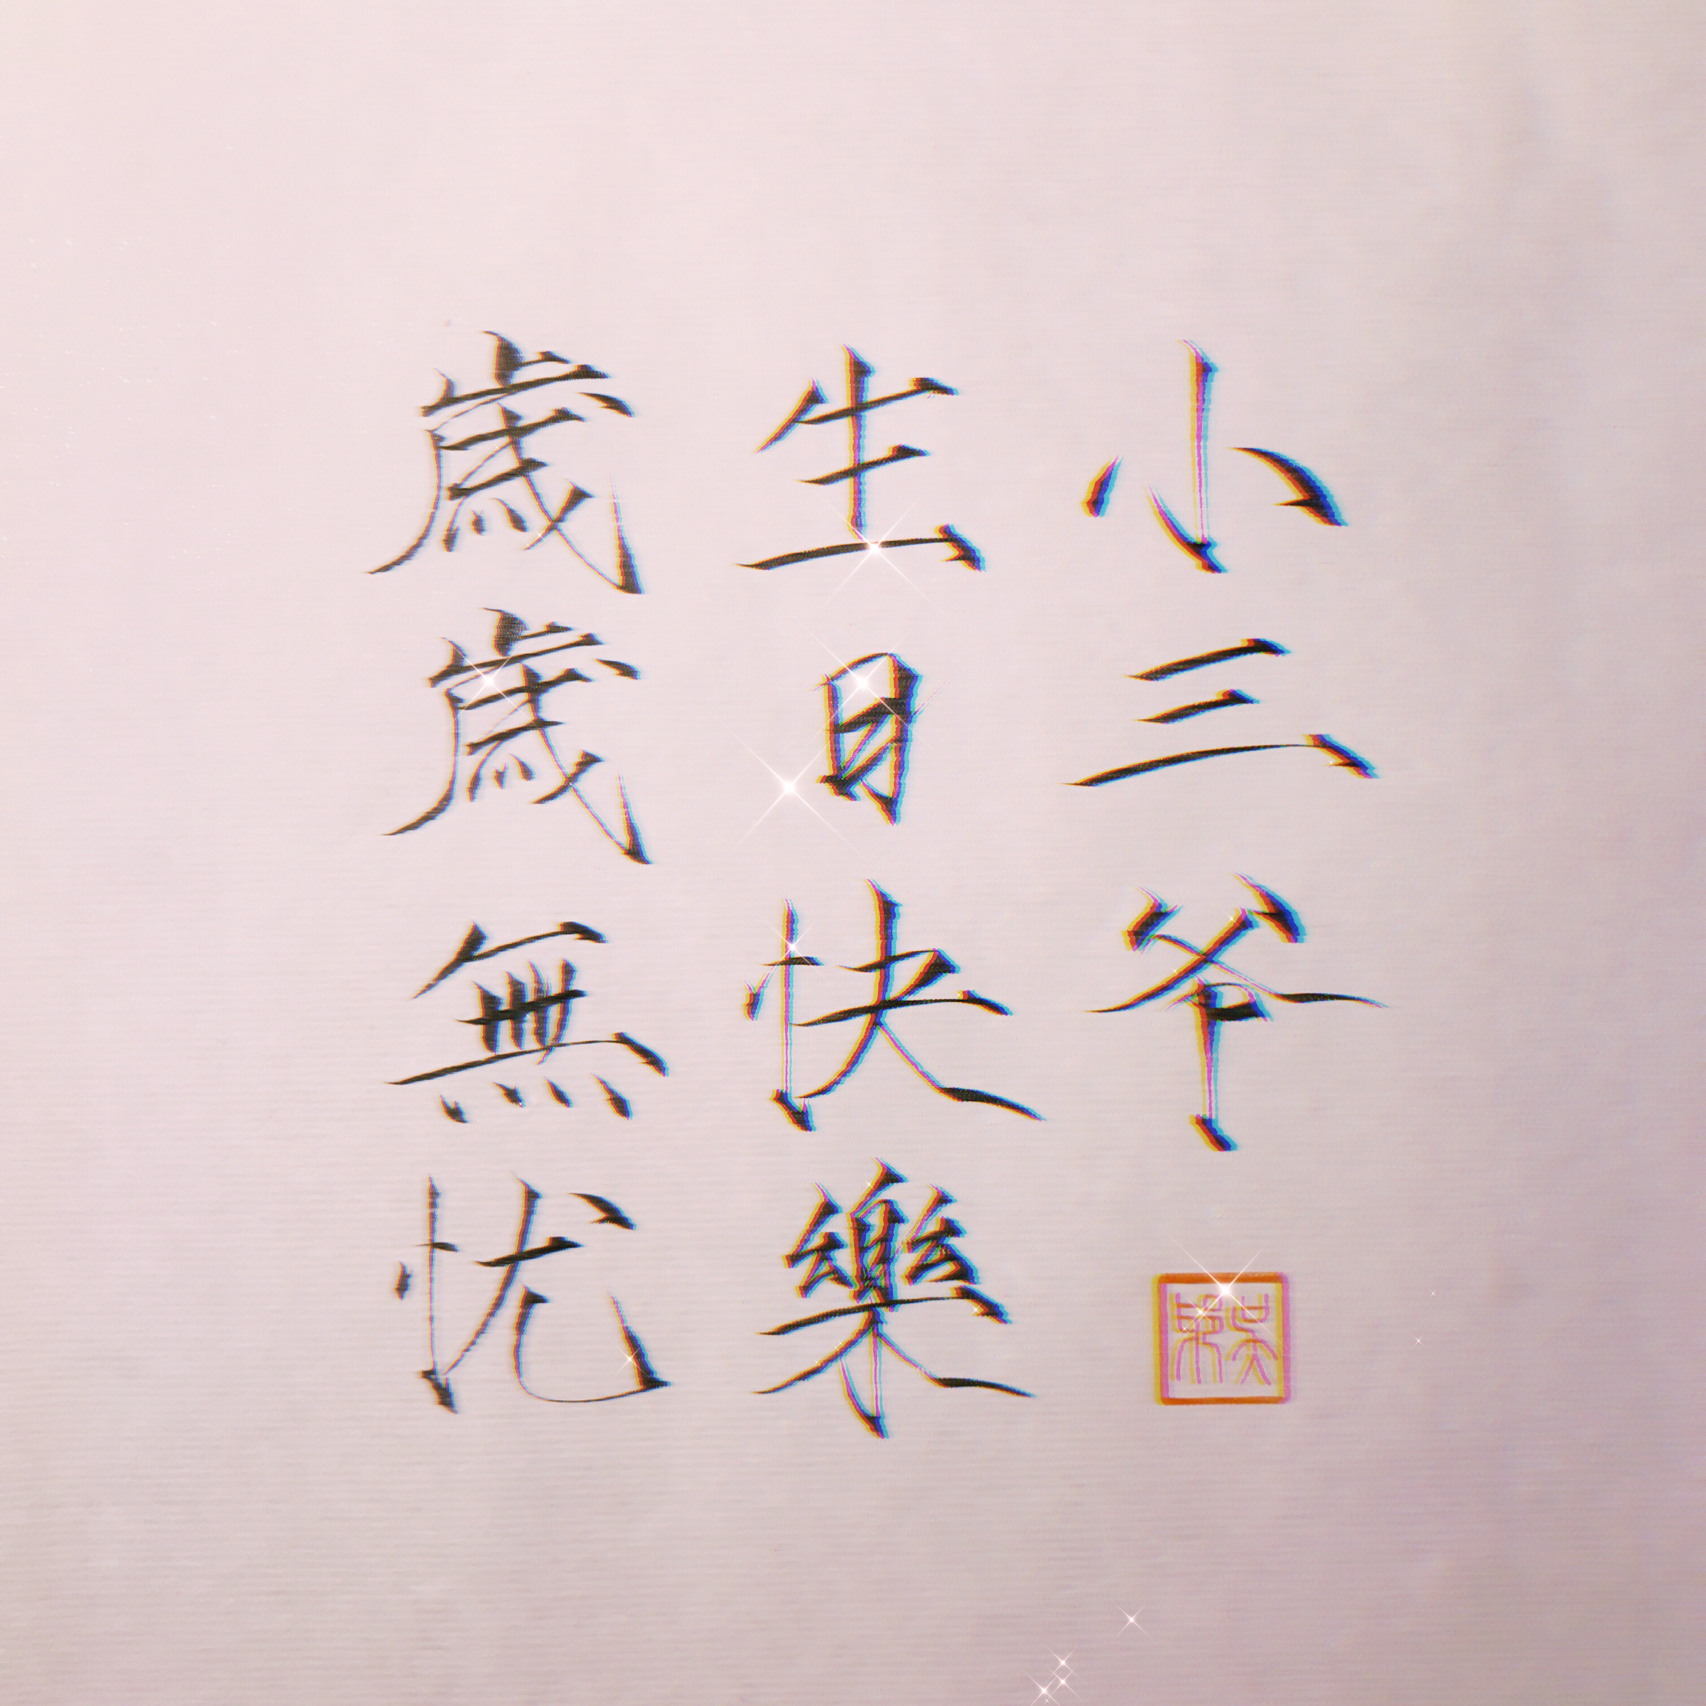 小三爷
生日快樂
歲歲無忧